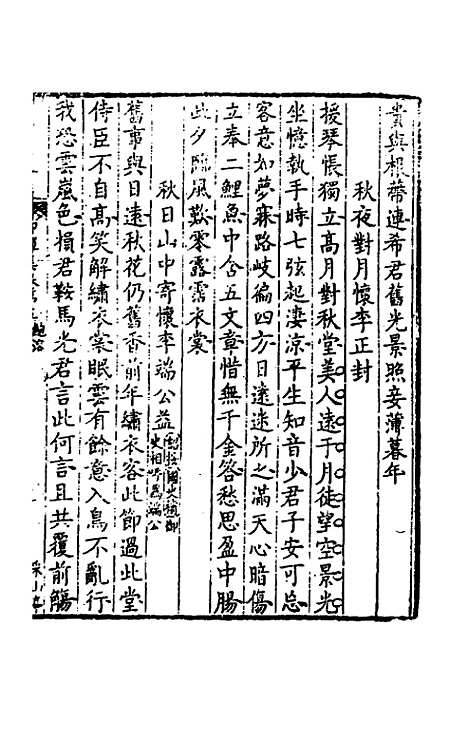 貴與根蔕連希君舊光景照妾薄暮年
秋夜對月懷李正封
援琴悵獨立高月對秋堂美人遠于月徒望空景光
坐憶執手時七弦起淒涼平生知音少君子安可忘
客意如夢寐路岐徧四方日遠迷所之滿天心暗傷
立奉二鯉魚中含五文章惜無千金答愁思盈中腸
此夕臨風歎零露霑衣裳
秋日山中寄懷李端公益
史相呼爲端公
舊事與日遠秋花仍舊香前年繡衣客此節過此堂
侍臣不自高笑解繡衣裳眠雲有餘意入鳥不亂行
我恐雲嵐色損君鞍馬光君言此何言且共覆前觴